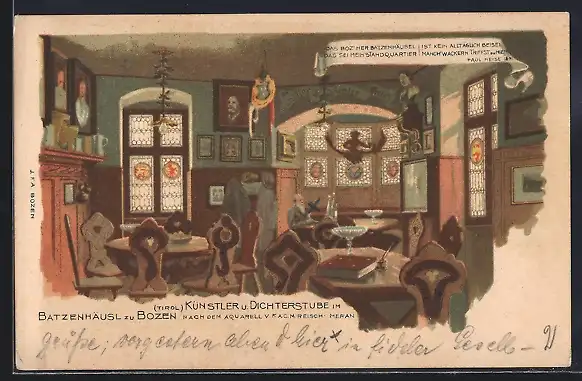 DAS BOZ'NER BATZENHÄUSEL
DAS SEI MEIN STANDQUARTIER
IST KEIN ALLTÄGLICH BEISEL
MANCH' WACKERN TRIFFST DU HIER
PAUL HEISE
J.F.A. BOZEN
(TIROL) KÜNSTLER U. DICHTERSTUBE IM
BATZENHÄUSL ZU BOZEN NACH DEM AQUARELL V. F. A. C. M. REISCH: MERAN
grüße; vorgestern abend hier in fideler Gesell-